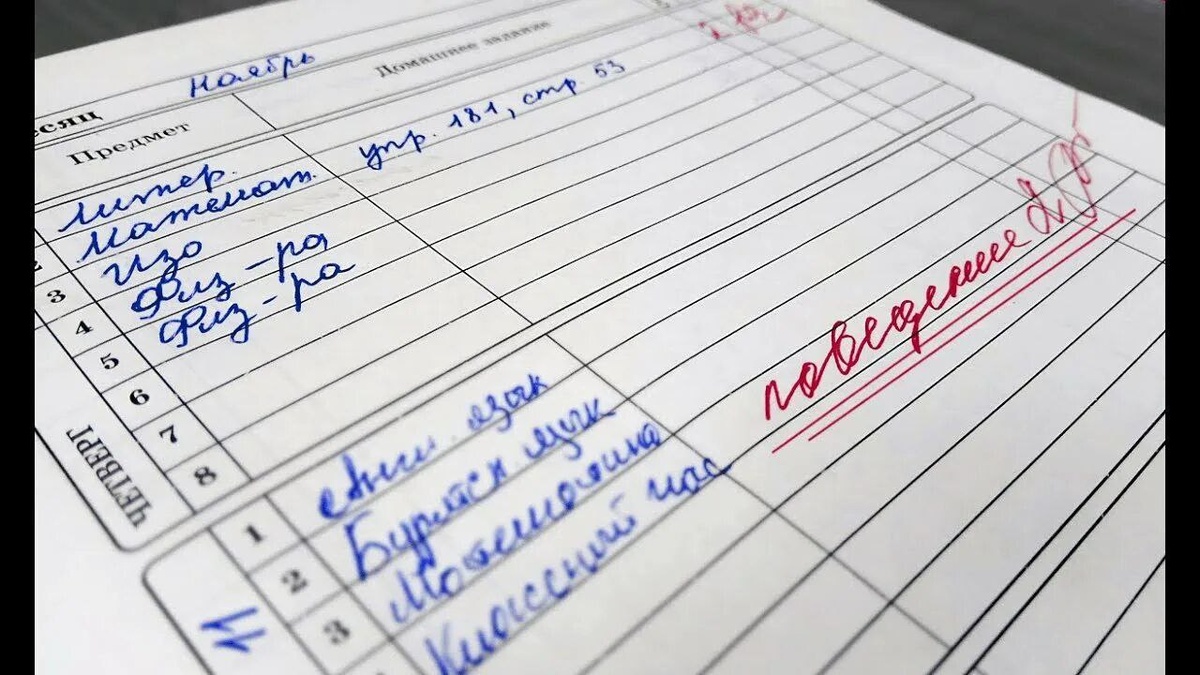 есяц ноябрь
Предмет Домашнее задание
литер.
2 Математ. упр. 181, стр. 53
3 Изо
4 Физ-ра
5 Физ-ра
6
7
8
ЧЕТВЕРГ
поведение 2
1 Англ. язык
2 Бурятск. язык
3 Математика
Классный час
11